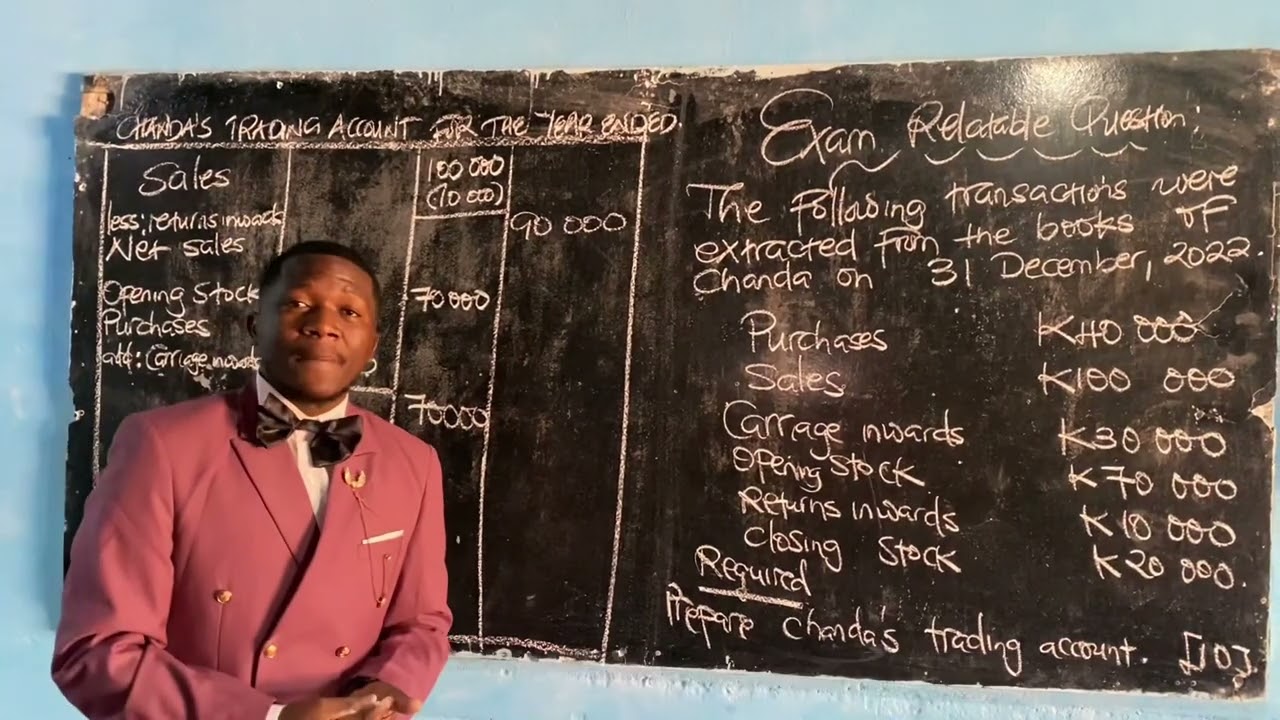 CHANDA'S TRADING ACCOUNT FOR THE YEAR ENDED.
Sales 100 000
less: returns inwards (10 000)
Net sales 90 000
Opening Stock 70 000
Purchases
add: Carriage inwards
70000
Exam Relatable Question:
The following transactions were
extracted from the books OF
Chanda on 31 December, 2022.
Purchases K40 000
Sales K100 000
Carriage inwards K30 000
Opening Stock K70 000
Returns inwards K10 000
Closing Stock K20 000.
Required
Prepare Chanda's trading account. [10]